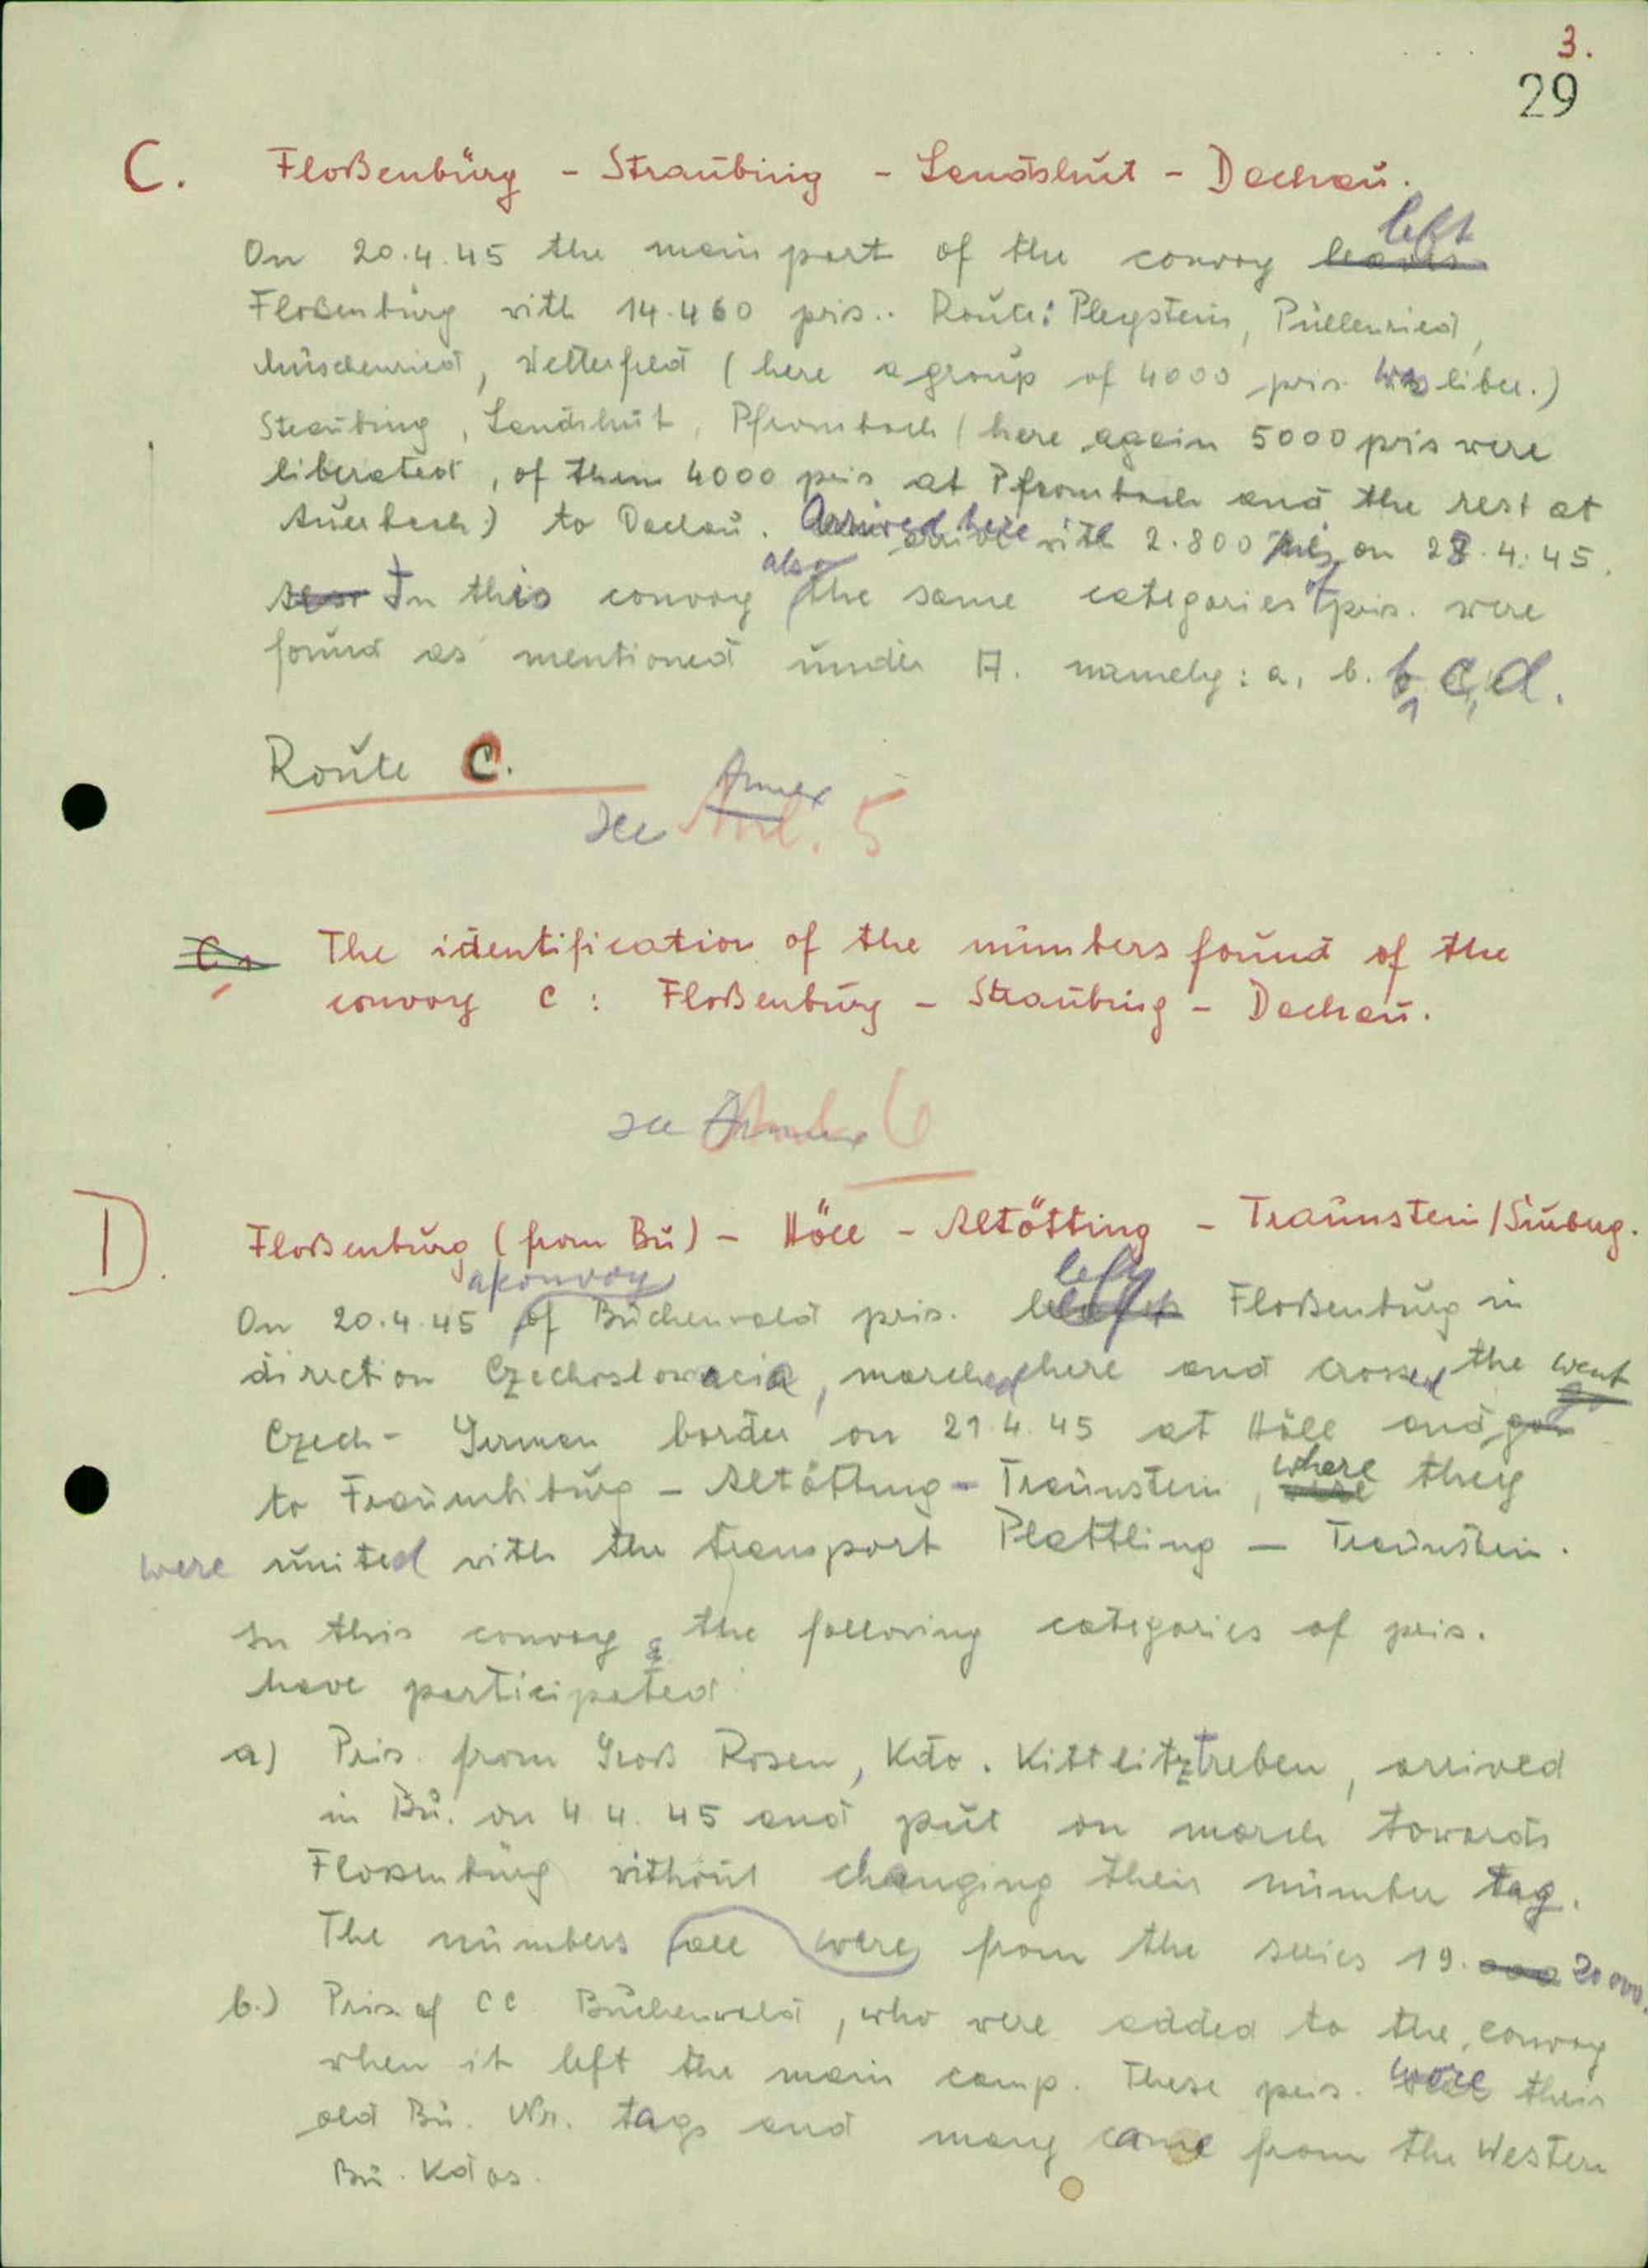 3.
29
C. Floßenbürg - Straubing - Landshut - Dachau.
left
On 20.4.45 the main part of the convoy leaves
Floßenbürg with 14.460 pris.. Route: Pleystein, Püllenried,
Muschenried, Wetterfeld (here a group of 4000 pris was liber.)
Straubing, Landshut, Pfrombach (here again 5000 pris were
liberated, of them 4000 pris at Pfrombach and the rest at
Auerbach) to Dachau. Arrived here with 2.800 pris on 28.4.45.
also
In this convoy the same categories of pris. were
found as mentioned under A. namely: a, b. b, c, d.
Route C.
see Annex 5
C. The identification of the numbers found of the
convoy C: Floßenbürg - Straubing - Dachau.
see Annex 6
D. Floßenbürg (from Bu) - Höll - Altötting - Traunstein/Surbug.
a convoy left
On 20.4.45 of Buchenwald pris. Floßenbürg in
direction Czechoslowacia, marched here and crossed the went
Czech - German border on 21.4.45 at Höll and go
to - Altötting - Traunstein, where they
were united with the transport Plattling - Traunstein.
In this convoy the following categories of pris.
have participated
a) Pris. from Groß Rosen, Kdo. Kittlitztreben, arrived
in Bu. on 4.4.45 and put on march towards
Flossenbürg without changing their number tag.
The numbers all were from the series 19. 000 20 000.
b.) Pris of CC Buchenwald, who were added to the convoy
when it left the main camp. These pris. wore their
old Bu. Nr. tags and many came from the Western
Bu. Kdos.